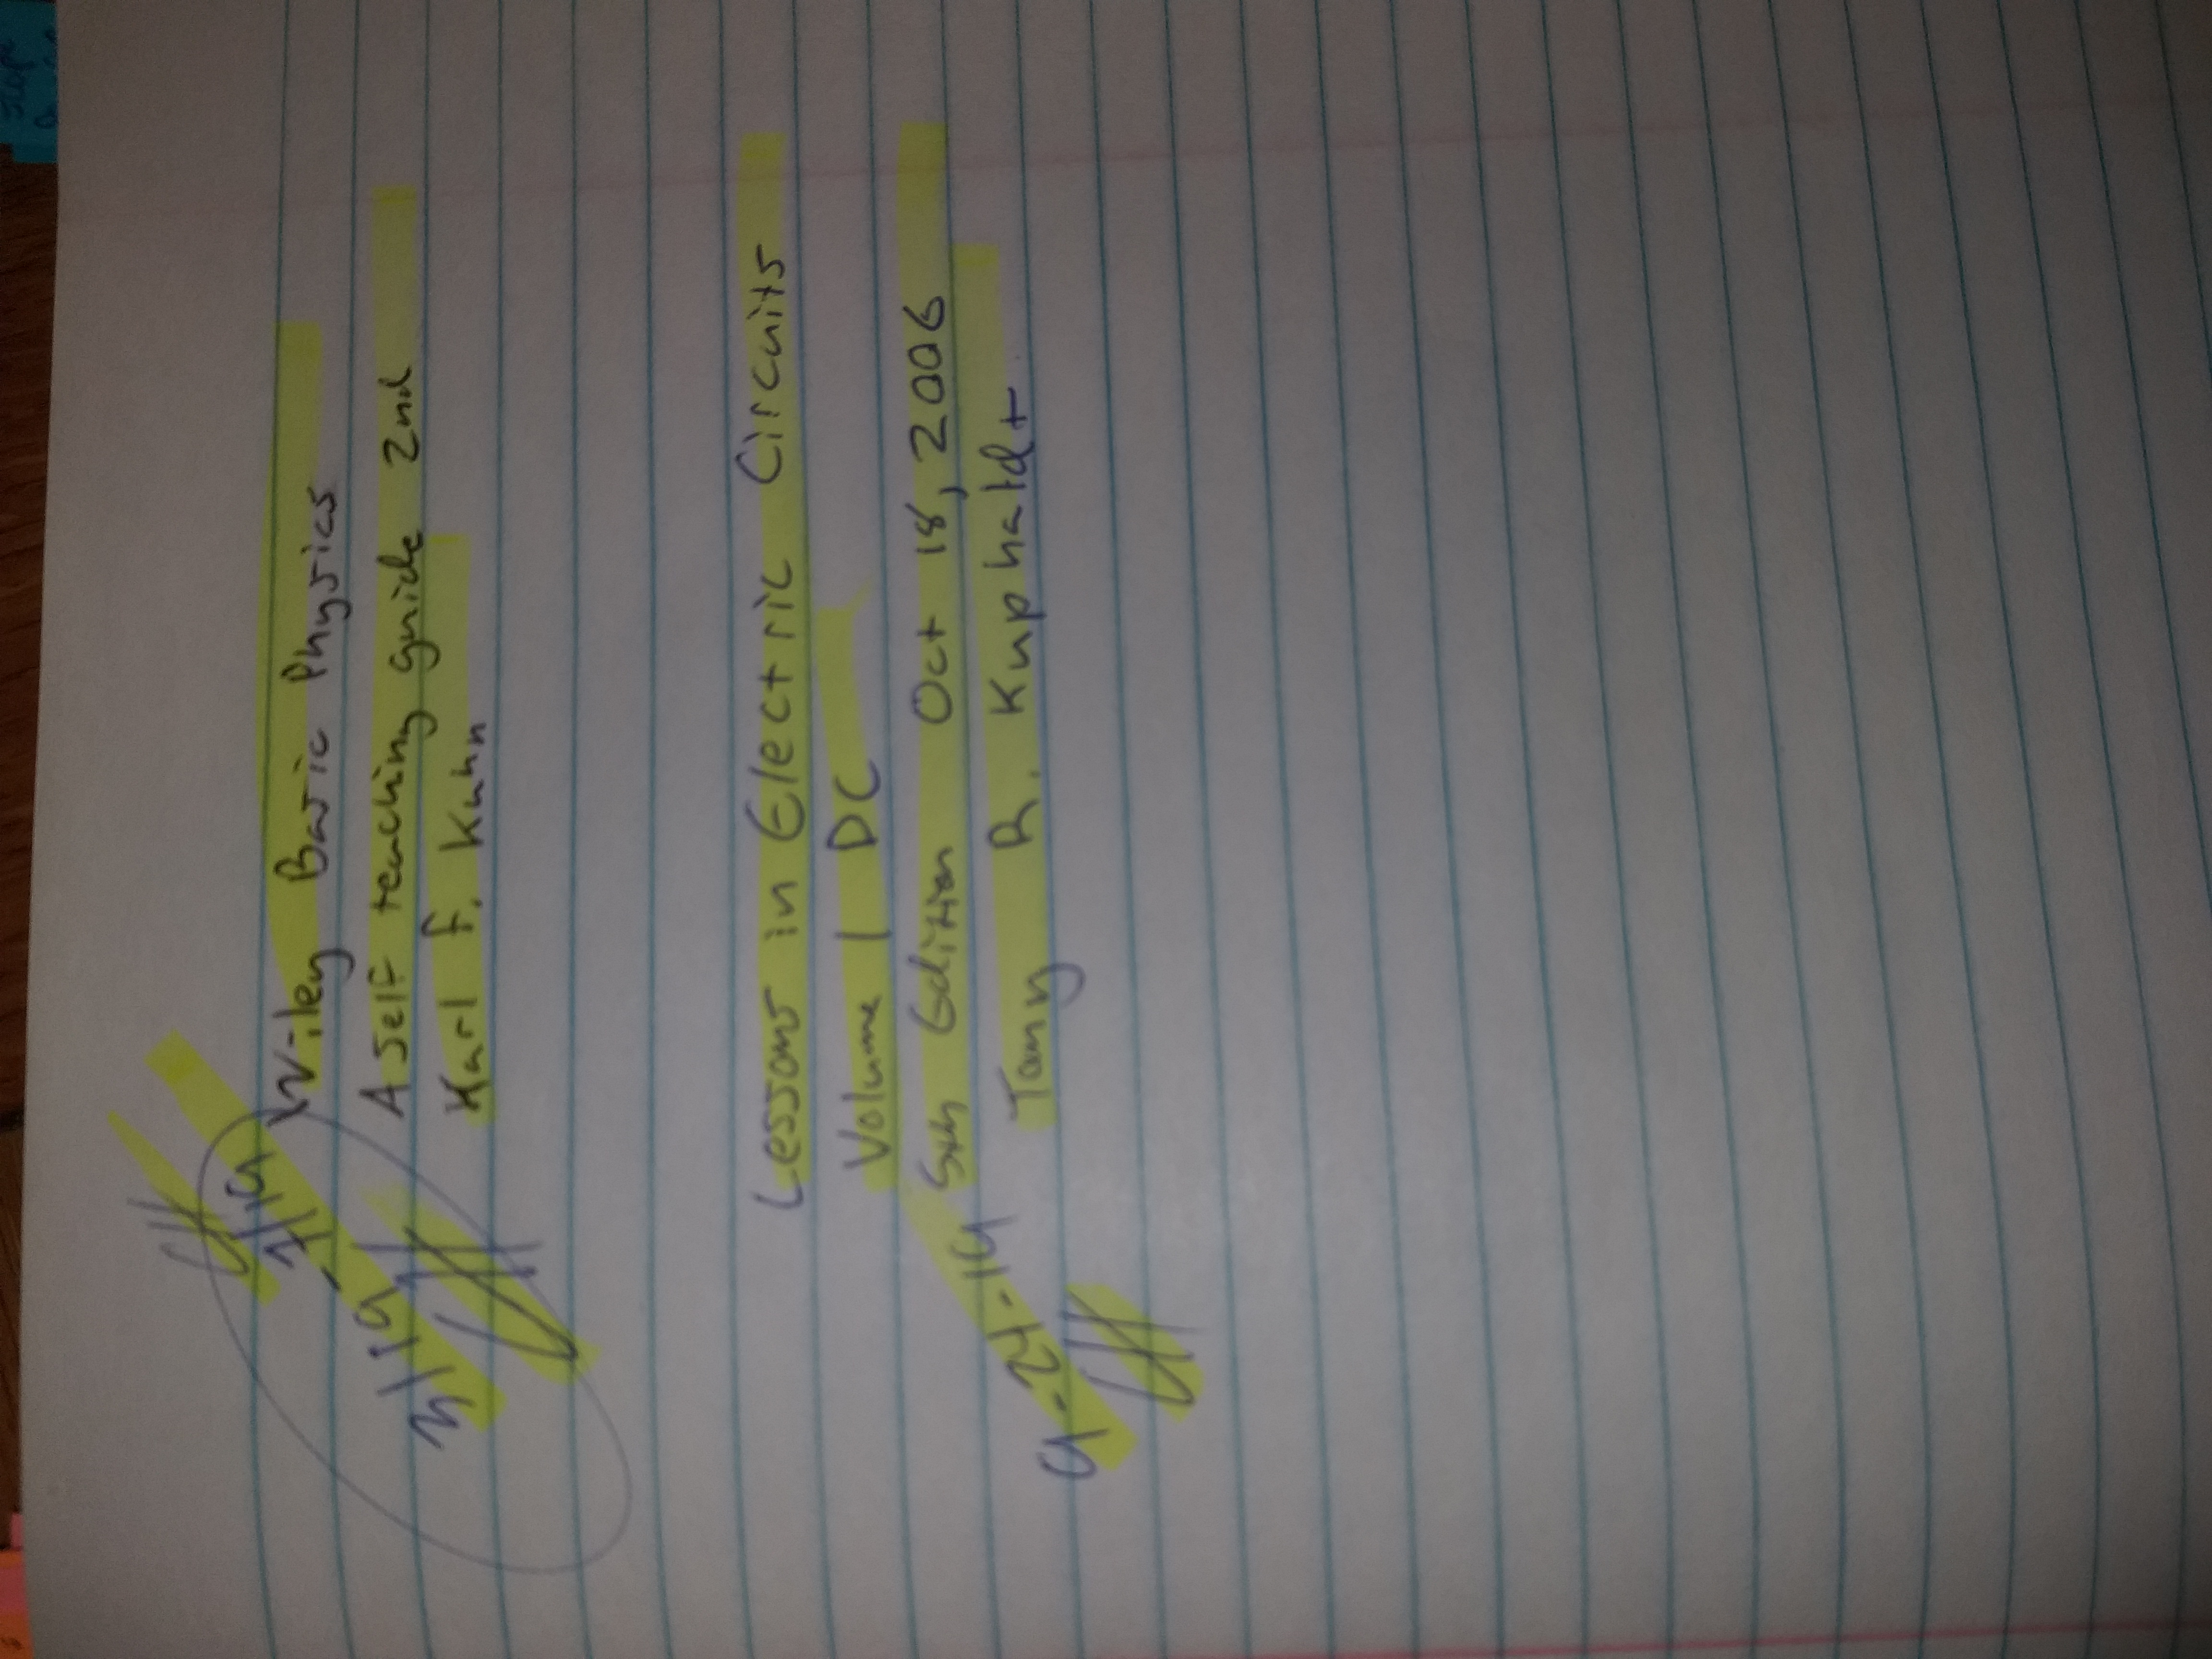 3/19-7/19
Wiley Basic Physics
A Self teaching guide 2nd
Karl F. Kuhn
Lessons in Electric Circuits
Volume 1 DC
5th Edition Oct 18, 2006
Tony R. Kuphaldt
9-24-19